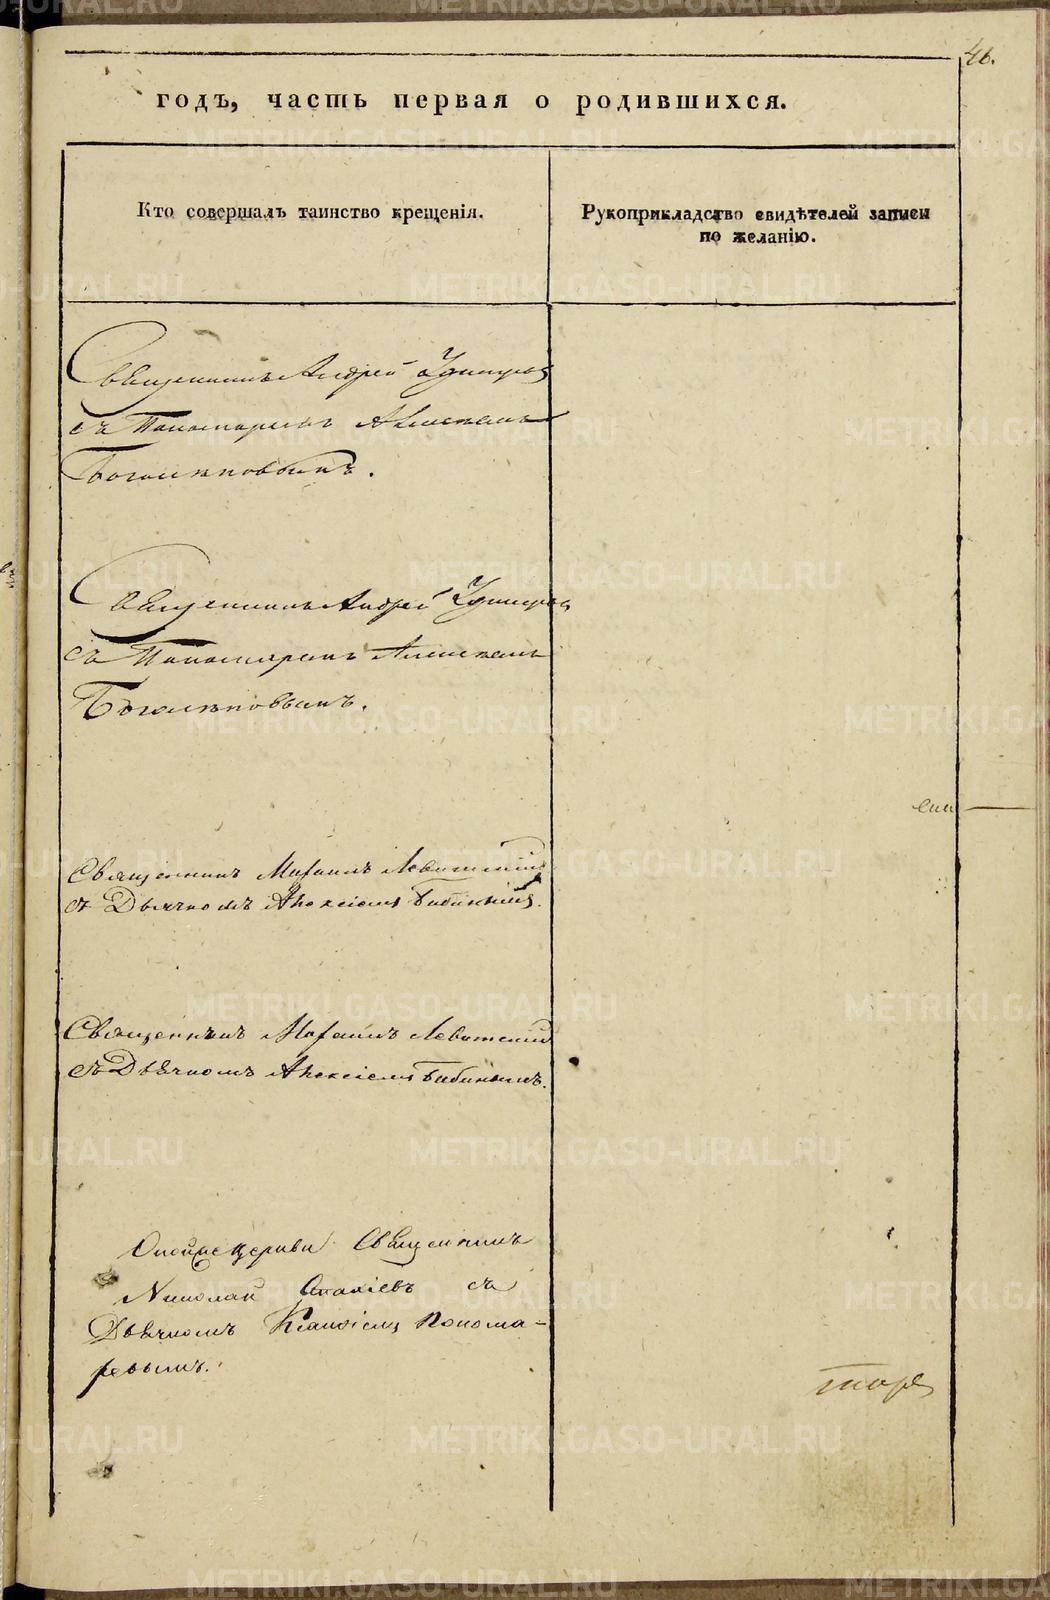 46.
годъ, часть первая о родившихся.
Кто совершалъ таинство крещенія.
Рукоприкладство свидѣтелей записи
по желанію.
Священникъ Андрей
съ Пономаремъ Алексѣемъ
Боголѣповымъ.
Священникъ Андрей
съ Пономаремъ Алексѣемъ
Боголѣповымъ.
Священникъ Михаилъ Левитскій
съ Дьячкомъ Алексіемъ Бибинымъ.
Священникъ Михаилъ Левитскій
съ Дьячкомъ Алексіемъ Бибинымъ.
церкви Священникъ
Николай съ
Дьячкомъ Понома-
ревымъ.
METRIKI.GASO-URAL.RU